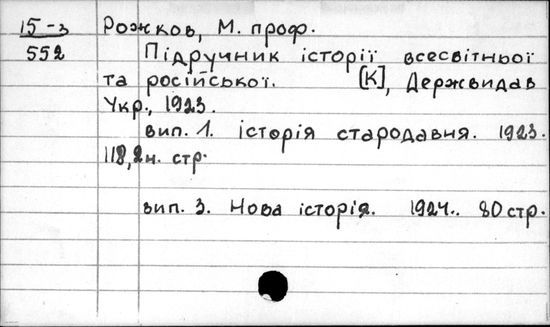 15-3 Рожков, М. проф.
552 Підручник історії всесвітньої
та російської. [К], Держвидав
Укр., 1923.
вип. 1. історія стародавня. 1923.
118,2н. стр.
вип. 3. Нова історія. 1924.. 80 стр.